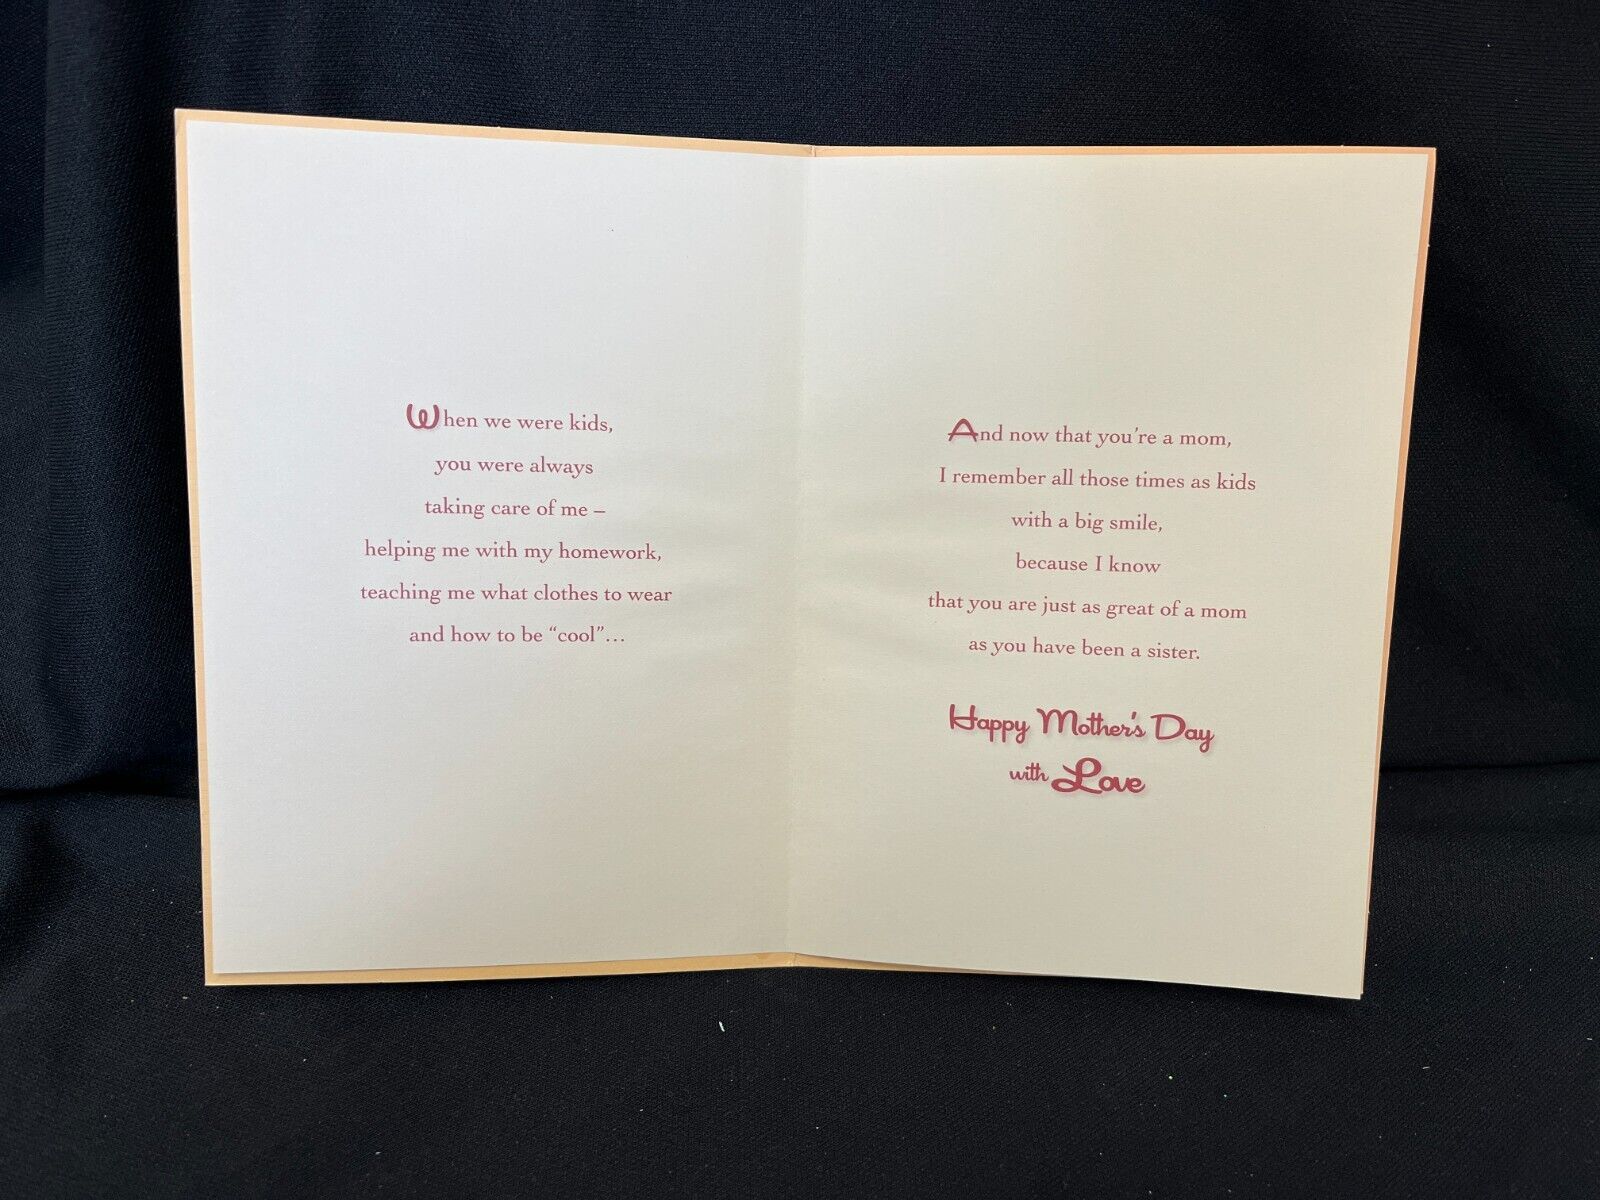 When we were kids,
you were always
taking care of me –
helping me with my homework,
teaching me what clothes to wear
and how to be “cool”…
And now that you’re a mom,
I remember all those times as kids
with a big smile,
because I know
that you are just as great of a mom
as you have been a sister.
Happy Mother’s Day
with Love